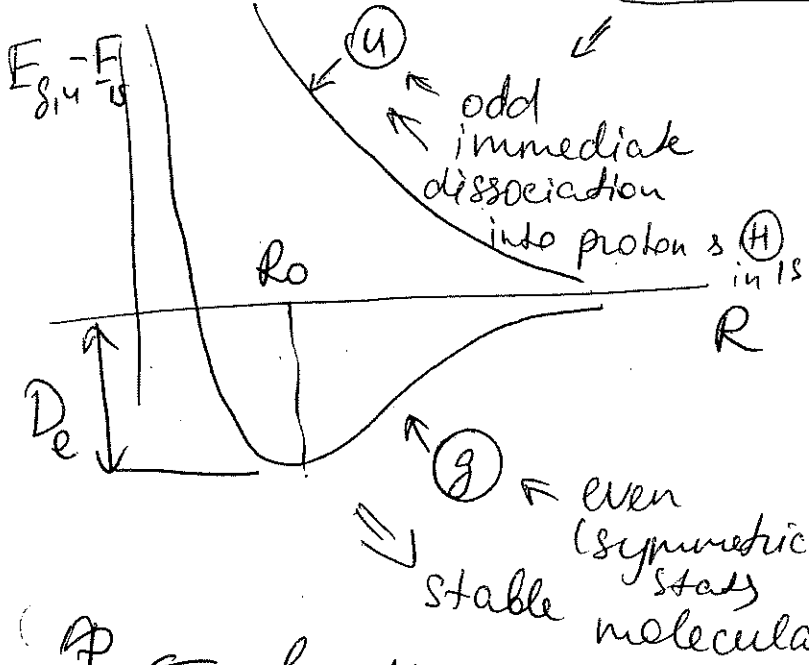 E_{g,u} - E_{1s}
u
odd
immediate
dissociation
into proton & H
in 1s
R_0
R
D_e
g
even
(symmetric
state
stable molecula